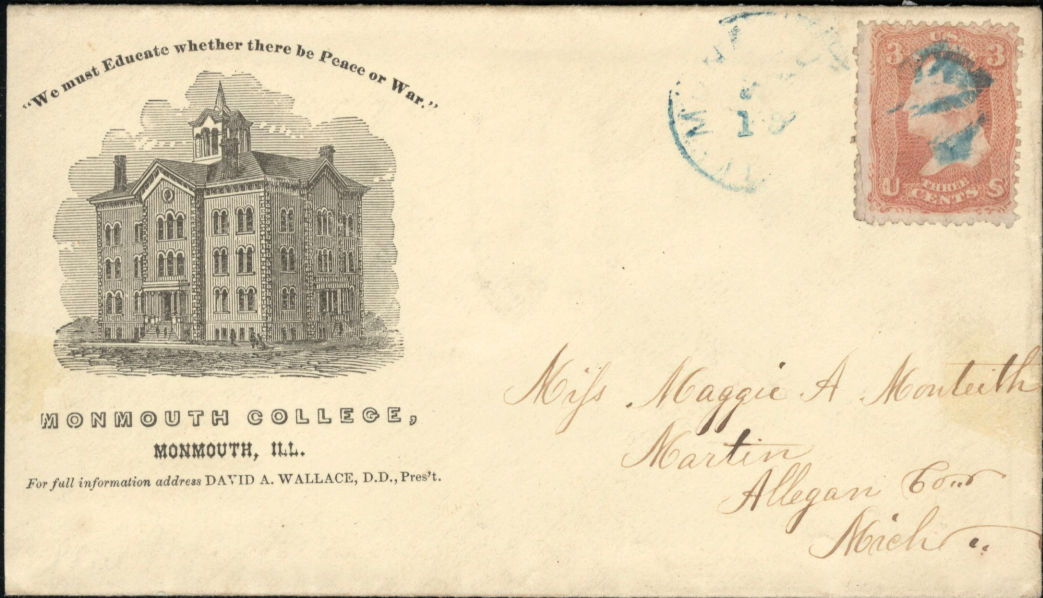 "We must Educate whether there be Peace or War."
MONMOUTH COLLEGE,
MONMOUTH, ILL.
For full information address DAVID A. WALLACE, D.D., Pres't.
U.S.
3 3
THREE
U CENTS S
Miss Maggie A Monteith
Martin
Allegan Co
Mich